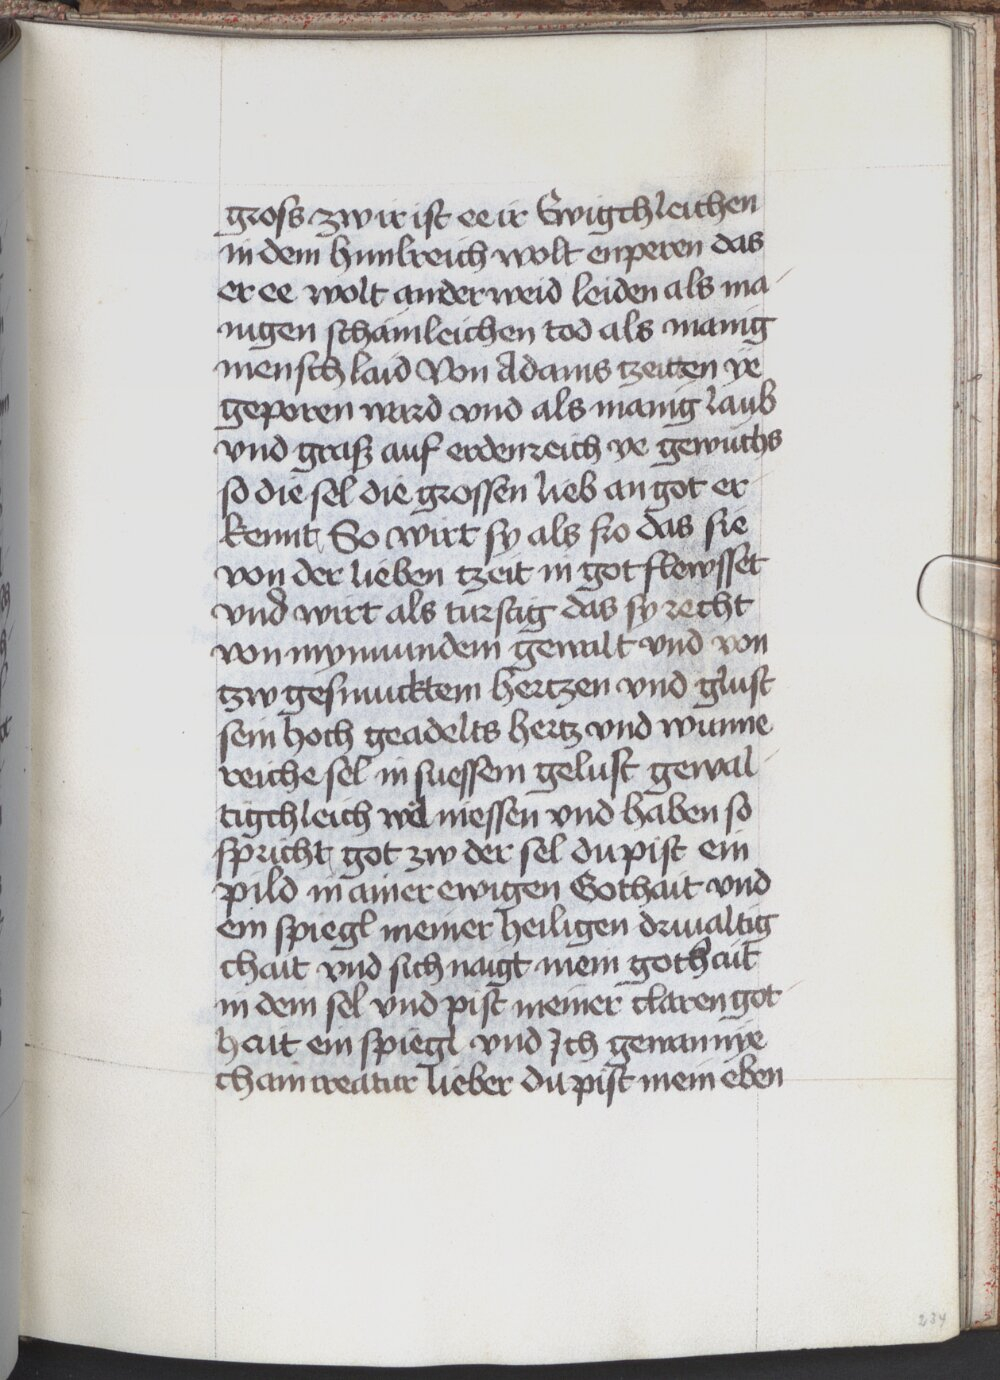 gross zw ir ist ee ir Ewigchleichen
in dem himlreich wolt enperen das
er ee wolt anderweid leiden als ma
nigen schamleichen tod als manig
mensch laid Von Adams tzeitten ye
geporen ward vnd als manig laub
vnd grass auf erdenreich ye gewuchs
so die sel die grossen lieb an got er
kennt So wirt sy als fro das sie
von der lieben tzeit in got flewsset
vnd wirt als turstig das sy recht
von gewalt vnd von
tzw gesmucktem hertzen vnd glust
sein hoch geadelts hertz vnd wunne
reiche sel in suessem gelust gewal
tigchleich wil niessen vnd haben so
spricht got zw der sel du pist ein
pild mainer ewigen Gothait vnd
ein spiegl meiner heiligen driualtig
chait vnd sich naigt mein gothait
in dem sel vnd pist meiner claren got
hait ein spiegl vnd Ich gewan nye
chain creatur lieber du pist mein eben
234